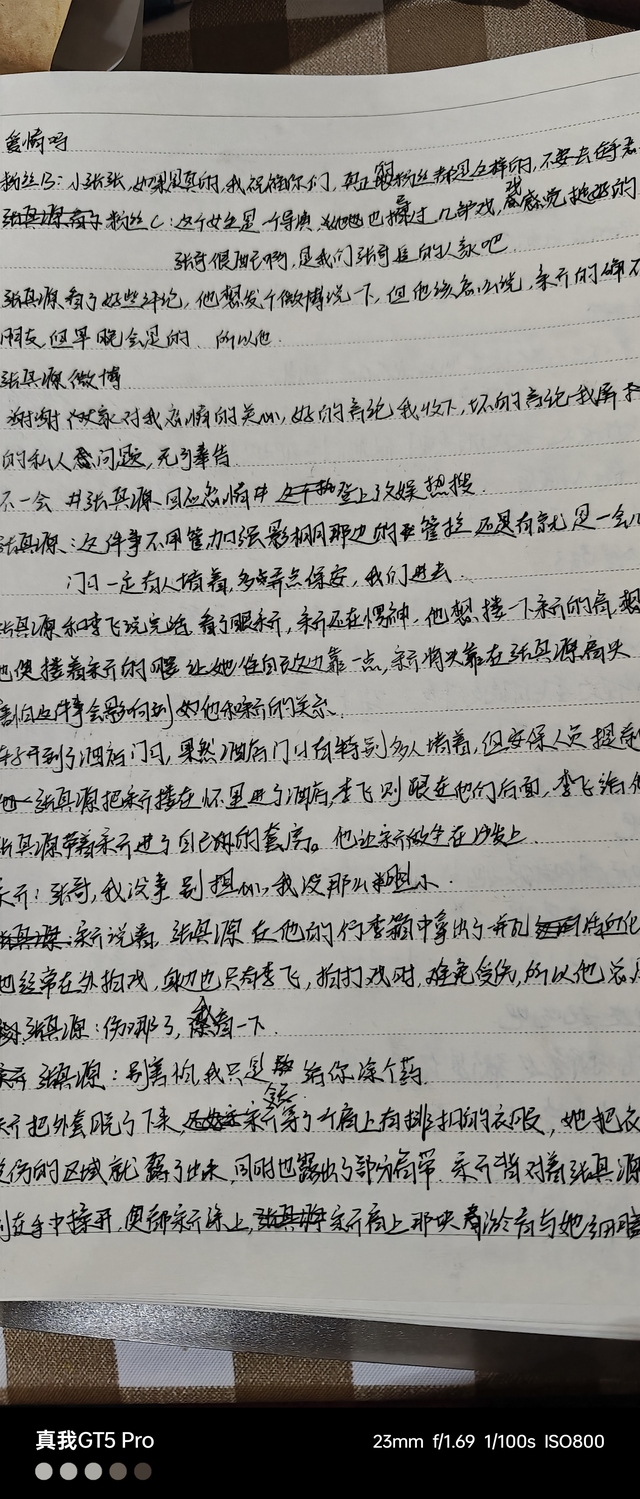 爱情吗
粉丝B：小张张，如果是真的，我祝福你们，真正的粉丝都是这样的，不要去在乎
粉丝C：这个女生是一个导演，她也拍过几部戏，我感觉挺好的
张哥很配啊，是我们张哥
的人家吧
张真源看了好些评论，他想发个微博说一下，但他该怎么说，亲亓的确不
朋友，但早晚会是的、所以他
张真源微博
谢谢大家对我恋情的关心，好的言论我收下，坏的言论我屏
的私人问题，无可奉告
不一会 #张真源回应恋情# 登上文娱热搜.
张真源：这件事不用管，加强影棚那边的管控 还是有就是一会儿
门口一定有人堵着，多弄点保安，我们进去.
张真源和李飞说完话，看了眼亓，亓还在愣神，他想搂一下亓的肩，想
他便搂着亓的腰让她往自己边靠一点，亓将头靠在张真源肩头
害怕这件事会影响到他和亓的关系.
车子开到了酒店门口，果然酒店门口有特别多人堵着，但安保人员提前
张真源把亓搂在怀里进了酒店，李飞则跟在他们后面，李飞给
张真源带着亓进了自己的套房。他让亓坐在沙发上.
亓：张哥，我没事 别担心，我没那么胆小.
亓说着，张真源在他的行李箱中拿出了一瓶活血化
他经常在外拍戏，身边也只有李飞，拍打戏时，难免受伤，所以他总
张真源：伤哪了，我看一下.
张真源：别害怕，我只是给你涂个药.
亓把外套脱了下来，今天亓穿了个肩上有排扣的衣服，她把衣
受伤的区域就露了出来，同时也露出了部分肩带 亓背对着张真源
在手中揉开，便帮亓涂上，亓肩上那块青淤青与她细
真我GT5 Pro
23mm f/1.69 1/100s ISO800